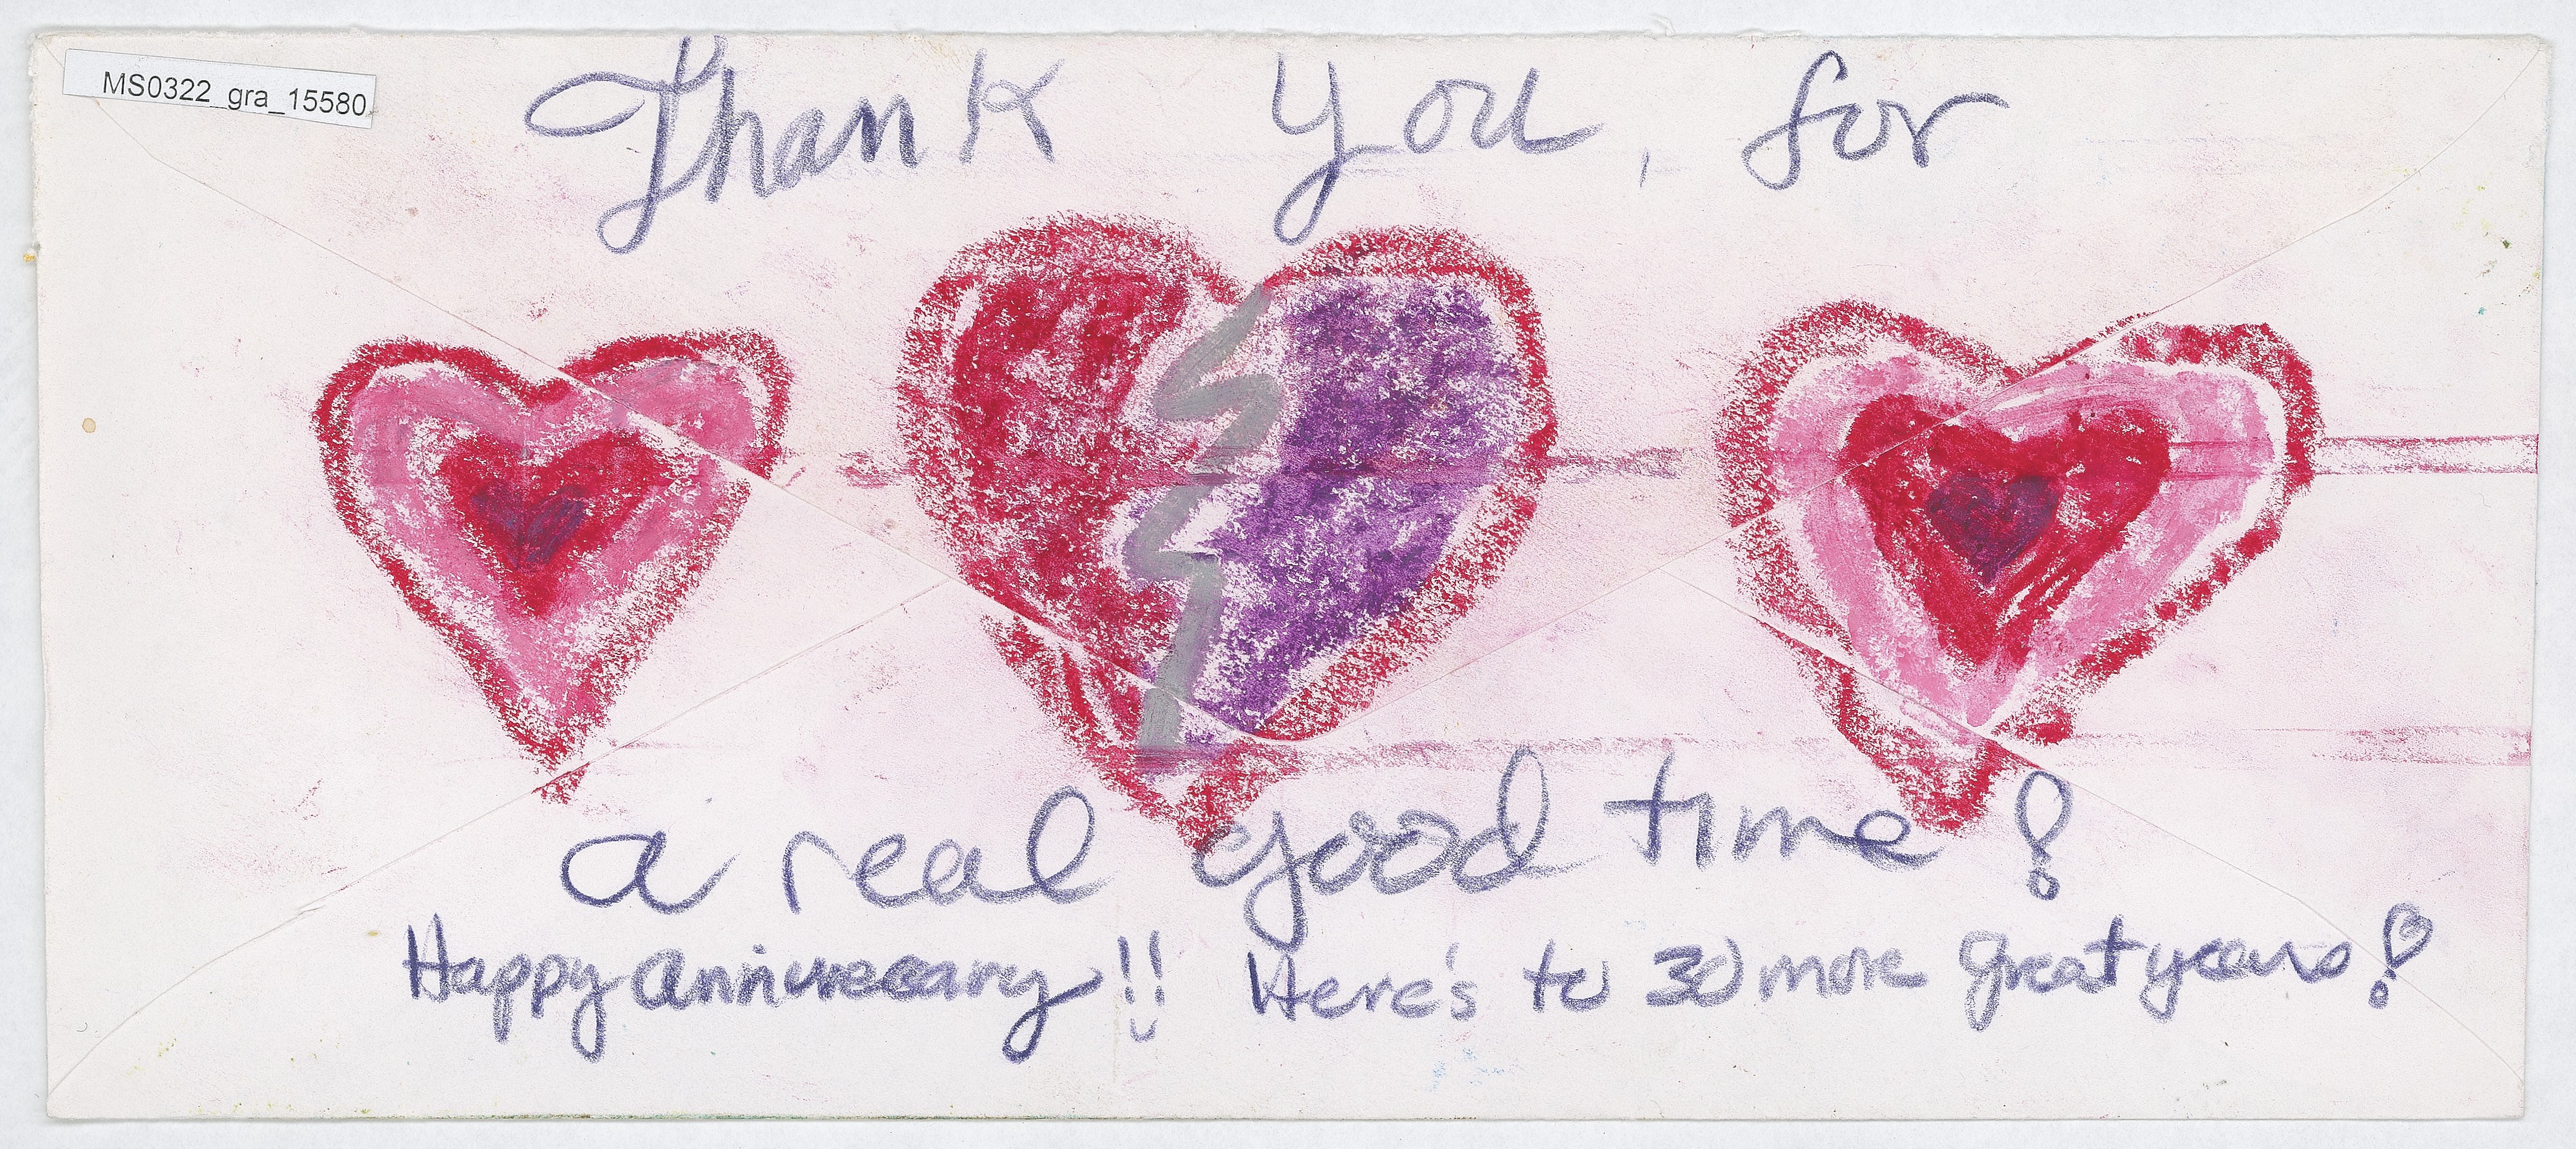 MS0322_gra_15580
Thank You, for
a real good time!
Happy Anniversary!! Here's to 30 more great years!